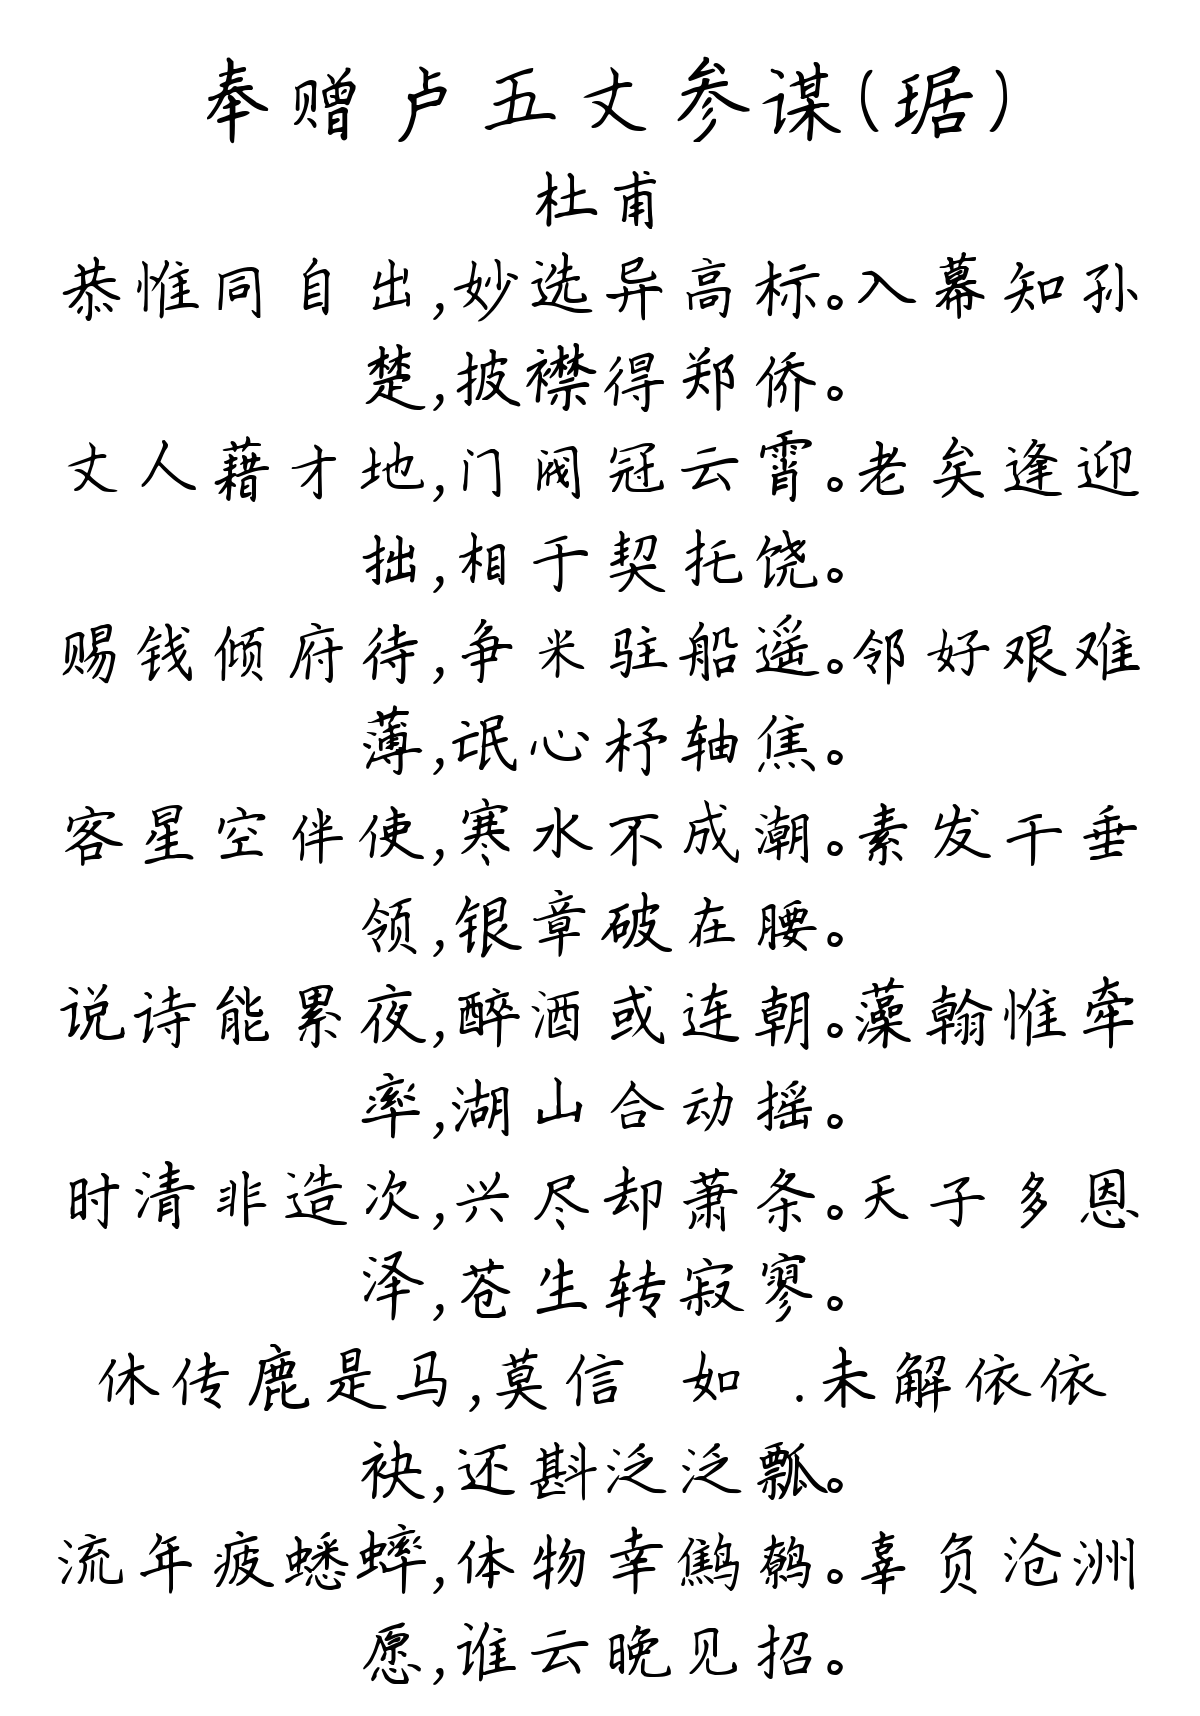 奉赠卢五丈参谋(琚)
杜甫
恭惟同自出,妙选异高标。入幕知孙
楚,披襟得郑侨。
丈人藉才地,门阀冠云霄。老矣逢迎
拙,相于契托饶。
赐钱倾府待,争米驻船遥。邻好艰难
薄,氓心杼轴焦。
客星空伴使,寒水不成潮。素发干垂
领,银章破在腰。
说诗能累夜,醉酒或连朝。藻翰惟牵
率,湖山合动摇。
时清非造次,兴尽却萧条。天子多恩
泽,苍生转寂寥。
休传鹿是马,莫信 如 .未解依依
袂,还斟泛泛瓢。
流年疲蟋蟀,体物幸鹪鹩。辜负沧洲
愿,谁云晚见招。